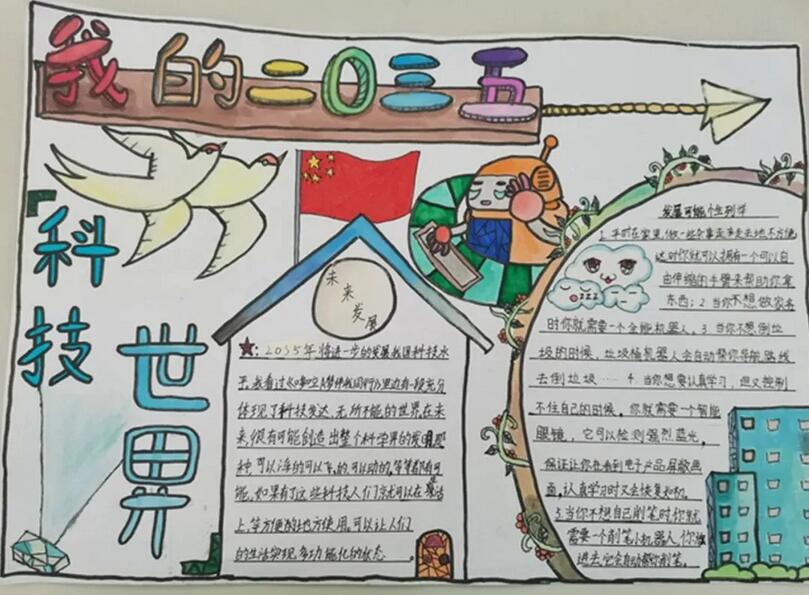 我的二〇三五
科技
世界
未来
发展
★：2035年将进一步的发展我国科技水
平，我看过《哆啦A梦伴我同行》里边有一段充分
体现了科技发达，无所不能的世界在未
来，很有可能创造出整个科学界的发明
种，可以浮的可以飞的，可以动的，等等都有可
能，如果有了这些科技人们就可以在
上，等方便的地方使用。可以让人们
的生活实现多功能化的状态。
发展可能个生列举
1.平时在家里，做一些杂事走来走去地不方便
这时你就可以拥有一个可以自
由伸缩的手臂来帮助你拿
东西；2.当你不想做家务
时你就需要一个全能机器人。3.当你不想倒垃
圾的时候，垃圾桶机器人会自动帮你导航路线
去倒垃圾……4.当你想要认真学习，但又控制
不住自己的时候。你就需要一个智能
眼镜，它可以检测强烈蓝光，
保证让你在看到电子产品屏
面，认真学习时又会恢复如初。
5.当你不想自己削笔时，你就
需要一个削笔小机器人，你
进去，它会自动帮你削笔。
zzz